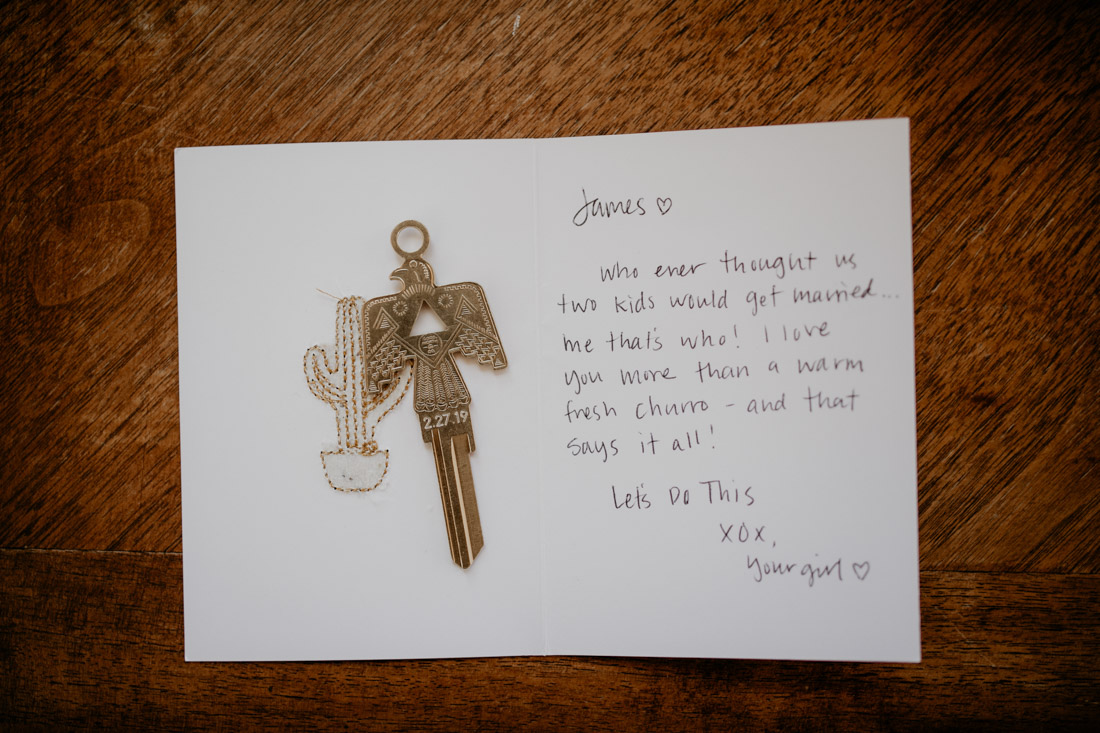 2.27.19
James ♡
who ever thought us
two kids would get married...
me that's who! I love
you more than a warm
fresh churro - and that
says it all!
Let's Do This
XOX,
your girl ♡